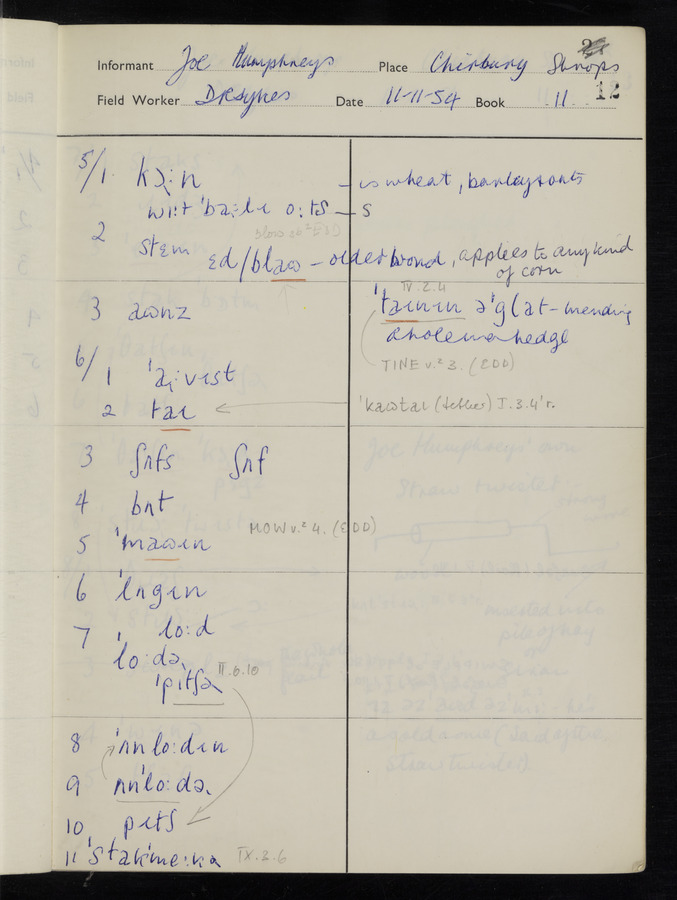 2
Informant Joe Humphreys Place Chirbury Shrops
Field Worker D R Sykes Date 11-11-54 Book 11. 12
5/1. kɔ:n – is wheat, barley & oats
wi:t 'ba:lɪ o:ts – s
2 stɛm ɛd/blaʊ – older word, applies to any kind
of corn
3 aʊnz 'taɪnɪn ə'glat – mending
IV.2.4
a hole in a hedge
TINE v.² 3. (EDD)
6/1 'a:vɪst
2 taɪ 'kaʊtaɪ (tether) I.3.4 r.
3 ʃʌfs ʃʌf
4 bʌt
5 'maʊɪn MOW v.² 4. (EDD)
6 'lʌgɪn
7 lo:d
'lo:də
'pɪtʃə II.6.10
8 'ʌnlo:dɪn
9 ʌn'lo:də
10 pɪtʃ
11 'stakme:kə IX.3.6